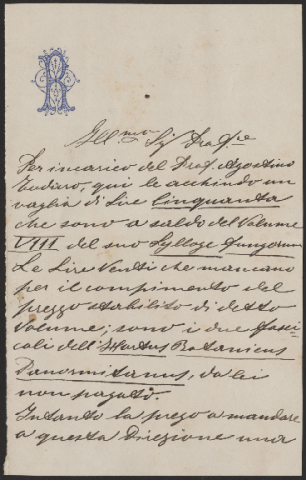 Ill.mo Sig. Prof.re
Per incarico del Prof. Agostino
Todaro, qui le acchiudo un
vaglia di Lire Cinquanta
che sono a saldo del Volume
VIII del suo Sylloge Fungorum
Le Lire Venti che mancano
per il compimento del
prezzo stabilito di detto
Volume; sono i due fasci-
coli dell'Hortus Botanicus
Panormitanus, da lei
non pagato.
Intanto la prego a mandare
a questa Direzione una